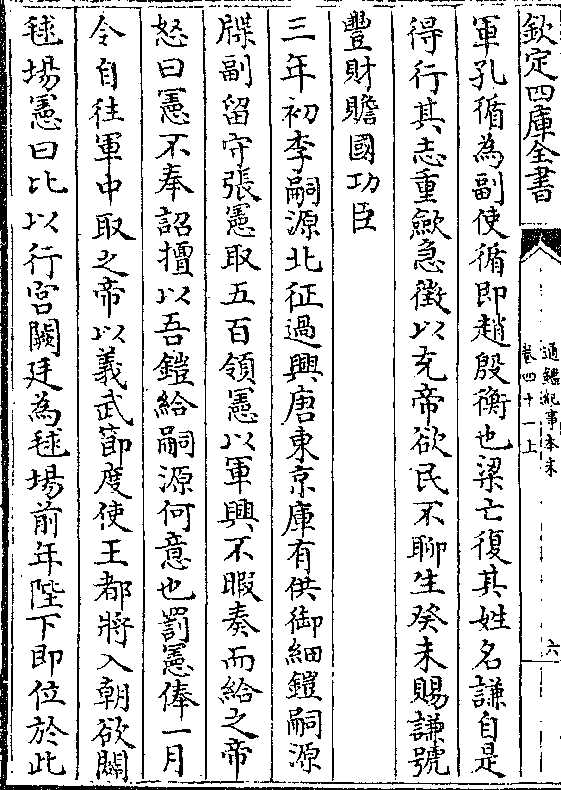 欽定四庫全書
通鑑紀事本末
卷四十一上
六
軍孔循為副使循即趙殷衡也梁亡復其姓名謙自是
得行其志重歛急徵以充帝欲民不聊生癸未賜謙號
豐財贍國功臣
三年初李嗣源北征過興唐東京庫有供御細鎧嗣源
牒副留守張憲取五百領憲以軍興不暇奏而給之帝
怒曰憲不奉詔擅以吾鎧給嗣源何意也罰憲俸一月
令自往軍中取之帝以義武節度使王都將入朝欲闢
毬場憲曰比以行宮闕廷為毬場前年陛下即位於此